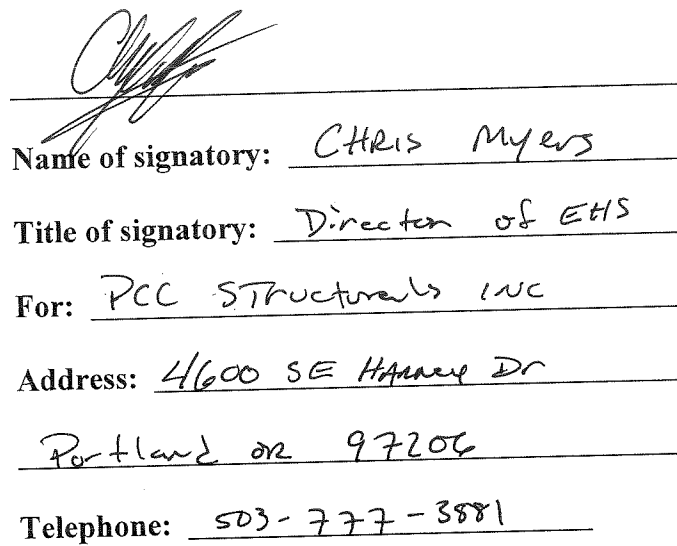 Name of signatory: CHRIS Myers
Title of signatory: Director of EHS
For: PCC STructurals INC
Address: 4600 SE HARNEY Dr
Portland OR 97206
Telephone: 503-777-3881